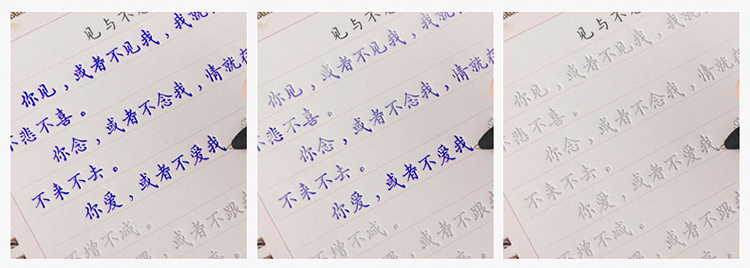 见与不
你见，或者不见我，我就
不悲不喜。
你念，或者不念我，情就在
不来不去。
你爱，或者不爱我
不增不减。
或者不跟我
见与不
你见，或者不见我，我就
不悲不喜。
你念，或者不念我，情就在
不来不去。
你爱，或者不爱我
不增不减。
或者不跟我
见与不
你见，或者不见我，我就
不悲不喜。
你念，或者不念我，情就在
不来不去。
你爱，或者不爱我
不增不减。
或者不跟我